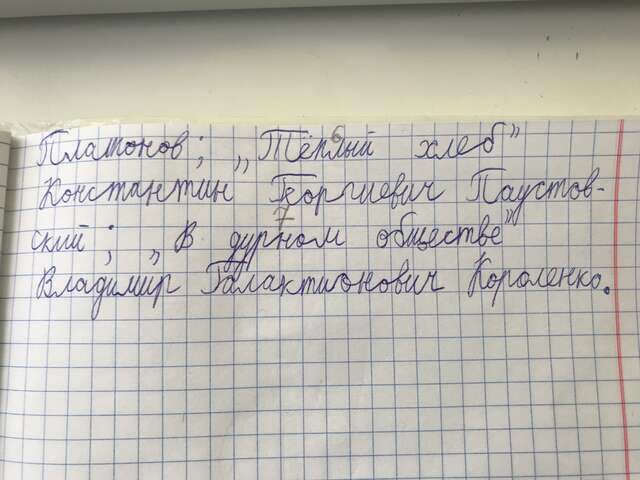 Платонов; „Тёплый хлеб"
6
Константин Георгиевич Паустов-
ский; „В дурном обществе"
7
Владимир Галактионович Короленко.